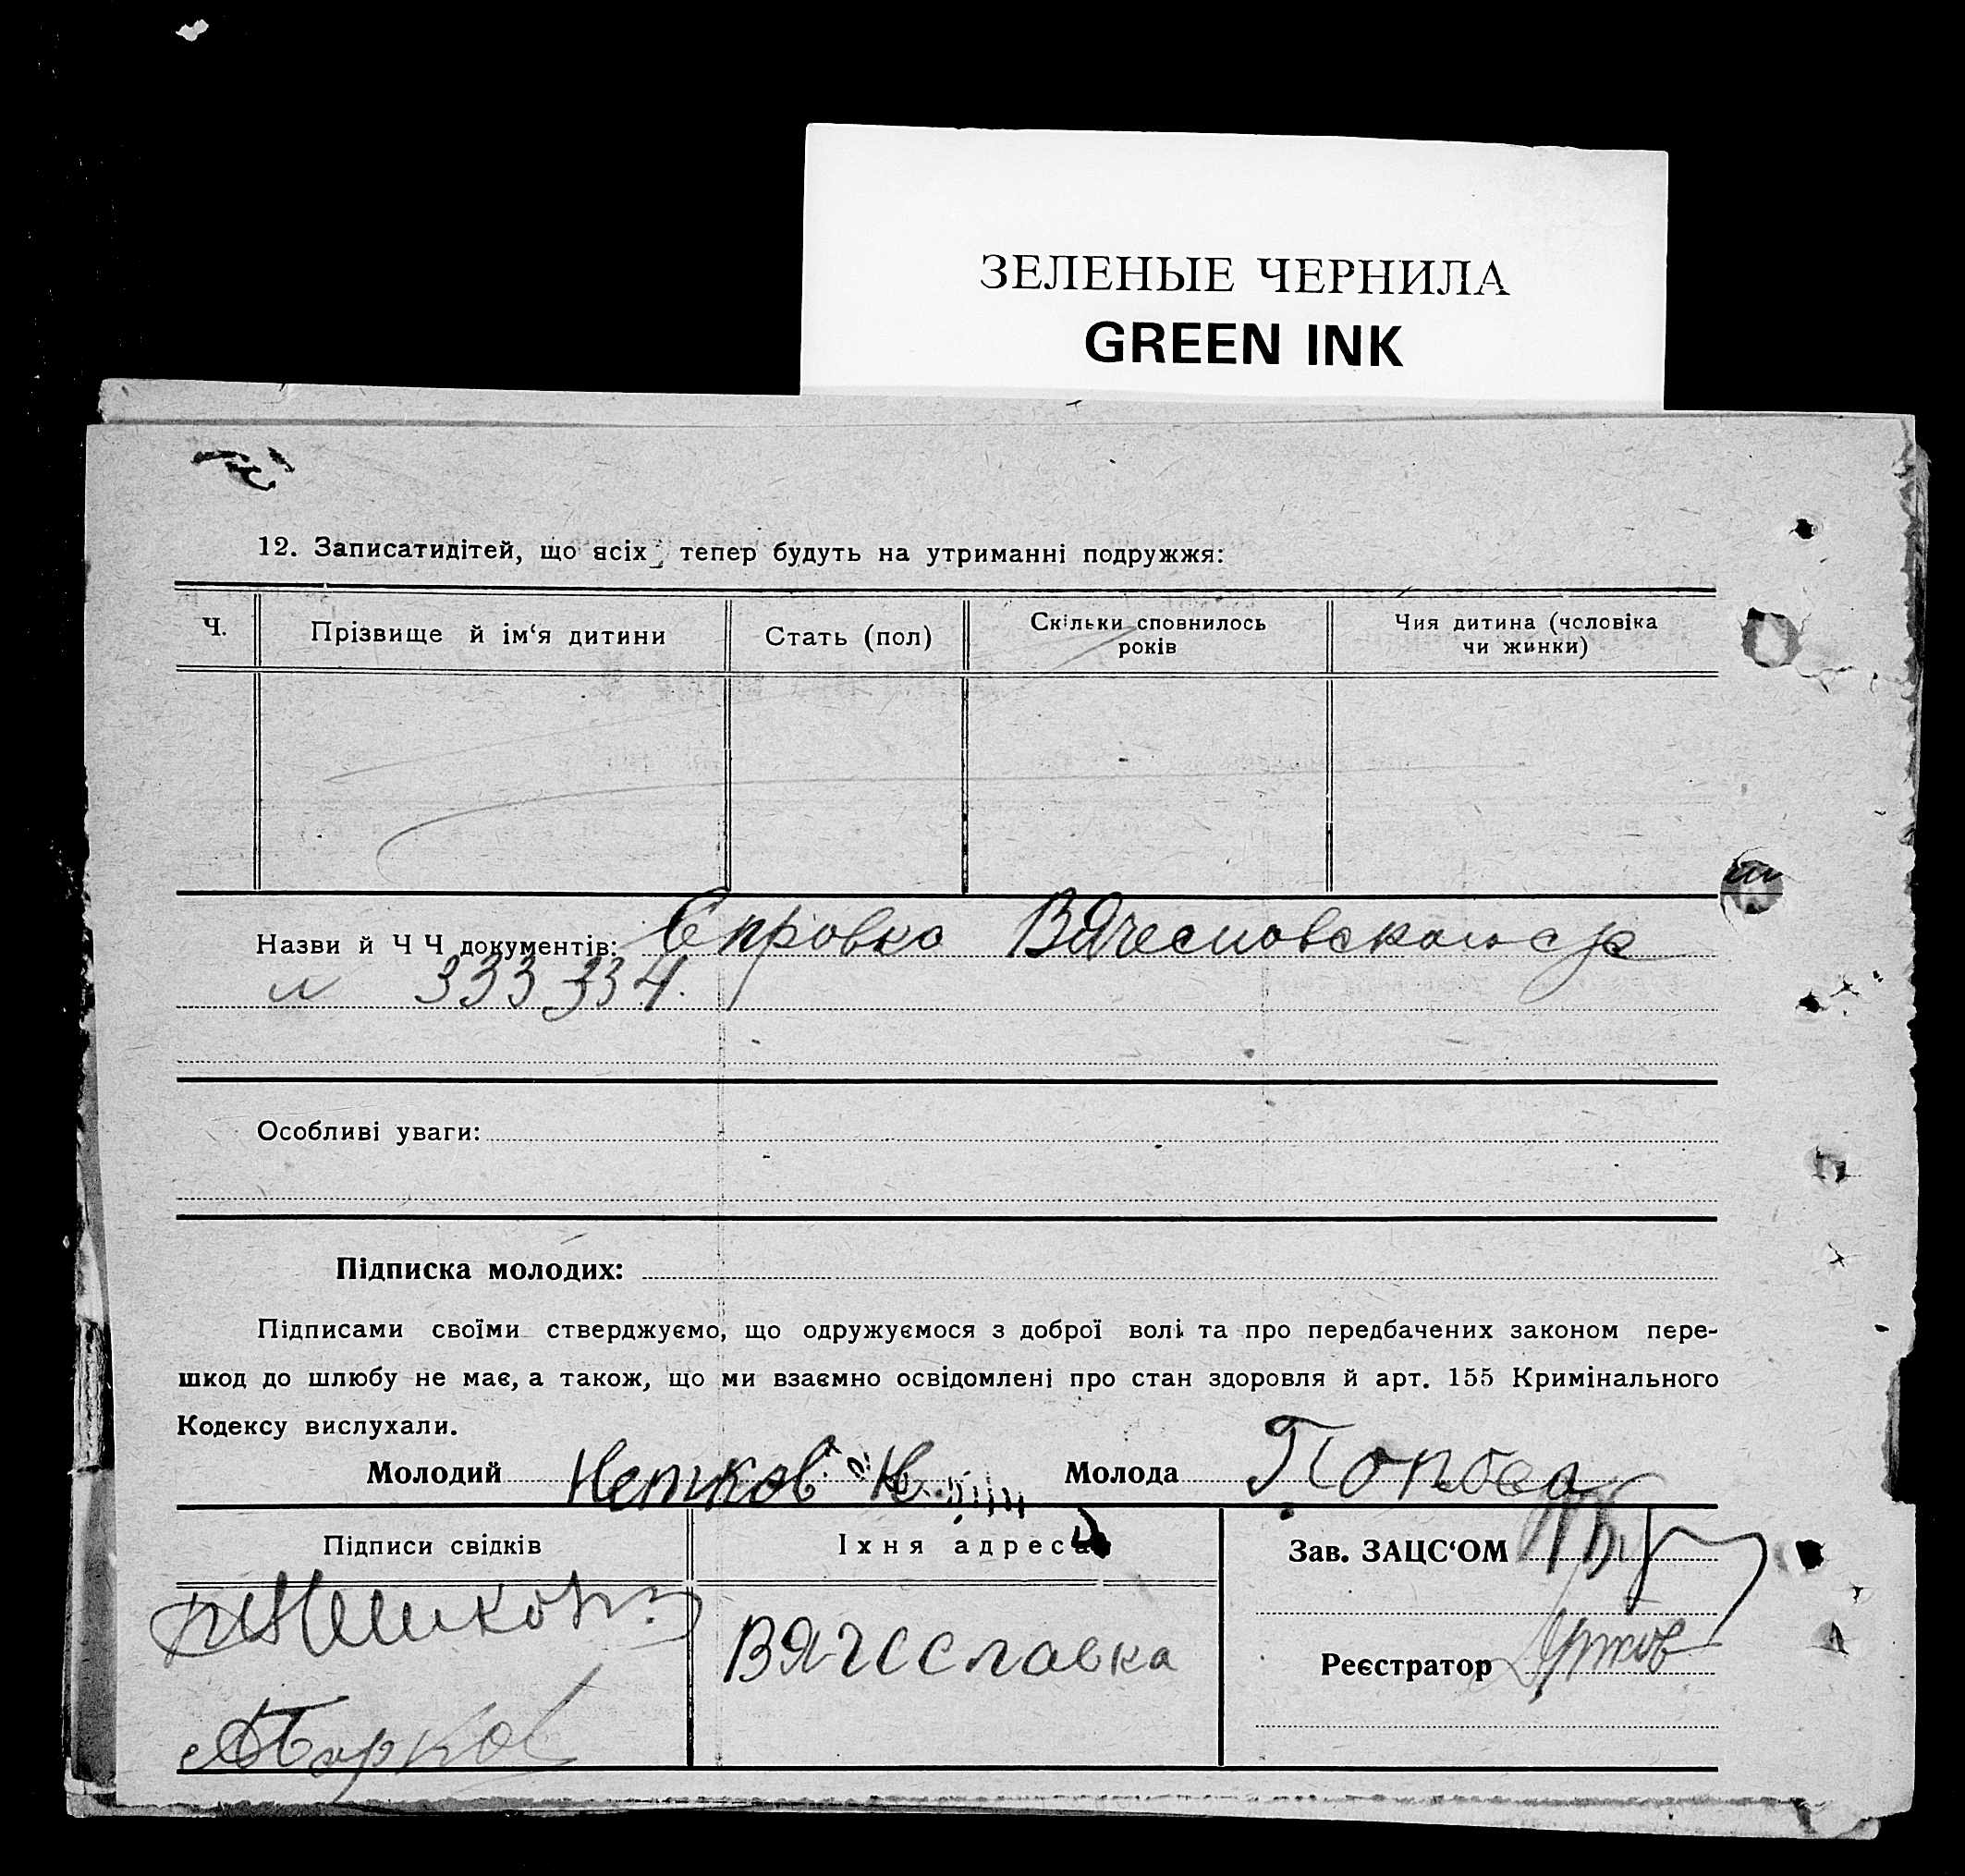 ЗЕЛЕНЫЕ ЧЕРНИЛА
GREEN INK
12. Записатидітей, що всіх тепер будуть на утриманні подружжя:
Ч.
Прізвище й ім‘я дитини
Стать (пол)
Скільки сповнилось
років
Чия дитина (чоловіка
чи жинки)
Назви й Ч Ч документів: Справка
№ 333 334.
Особливі уваги:
Підписка молодих:
Підписами своїми стверджуємо, що одружуємося з доброї волі та про передбачених законом пере-
шкод до шлюбу не має, а також, що ми взаємно освідомлені про стан здоровля й арт. 155 Кримінального
Кодексу вислухали.
Молодий Нетков Н. Молода
Підписи свідків
Їхня адреса
Зав. ЗАЦС‘ОМ
Вячеславка
Реєстратор